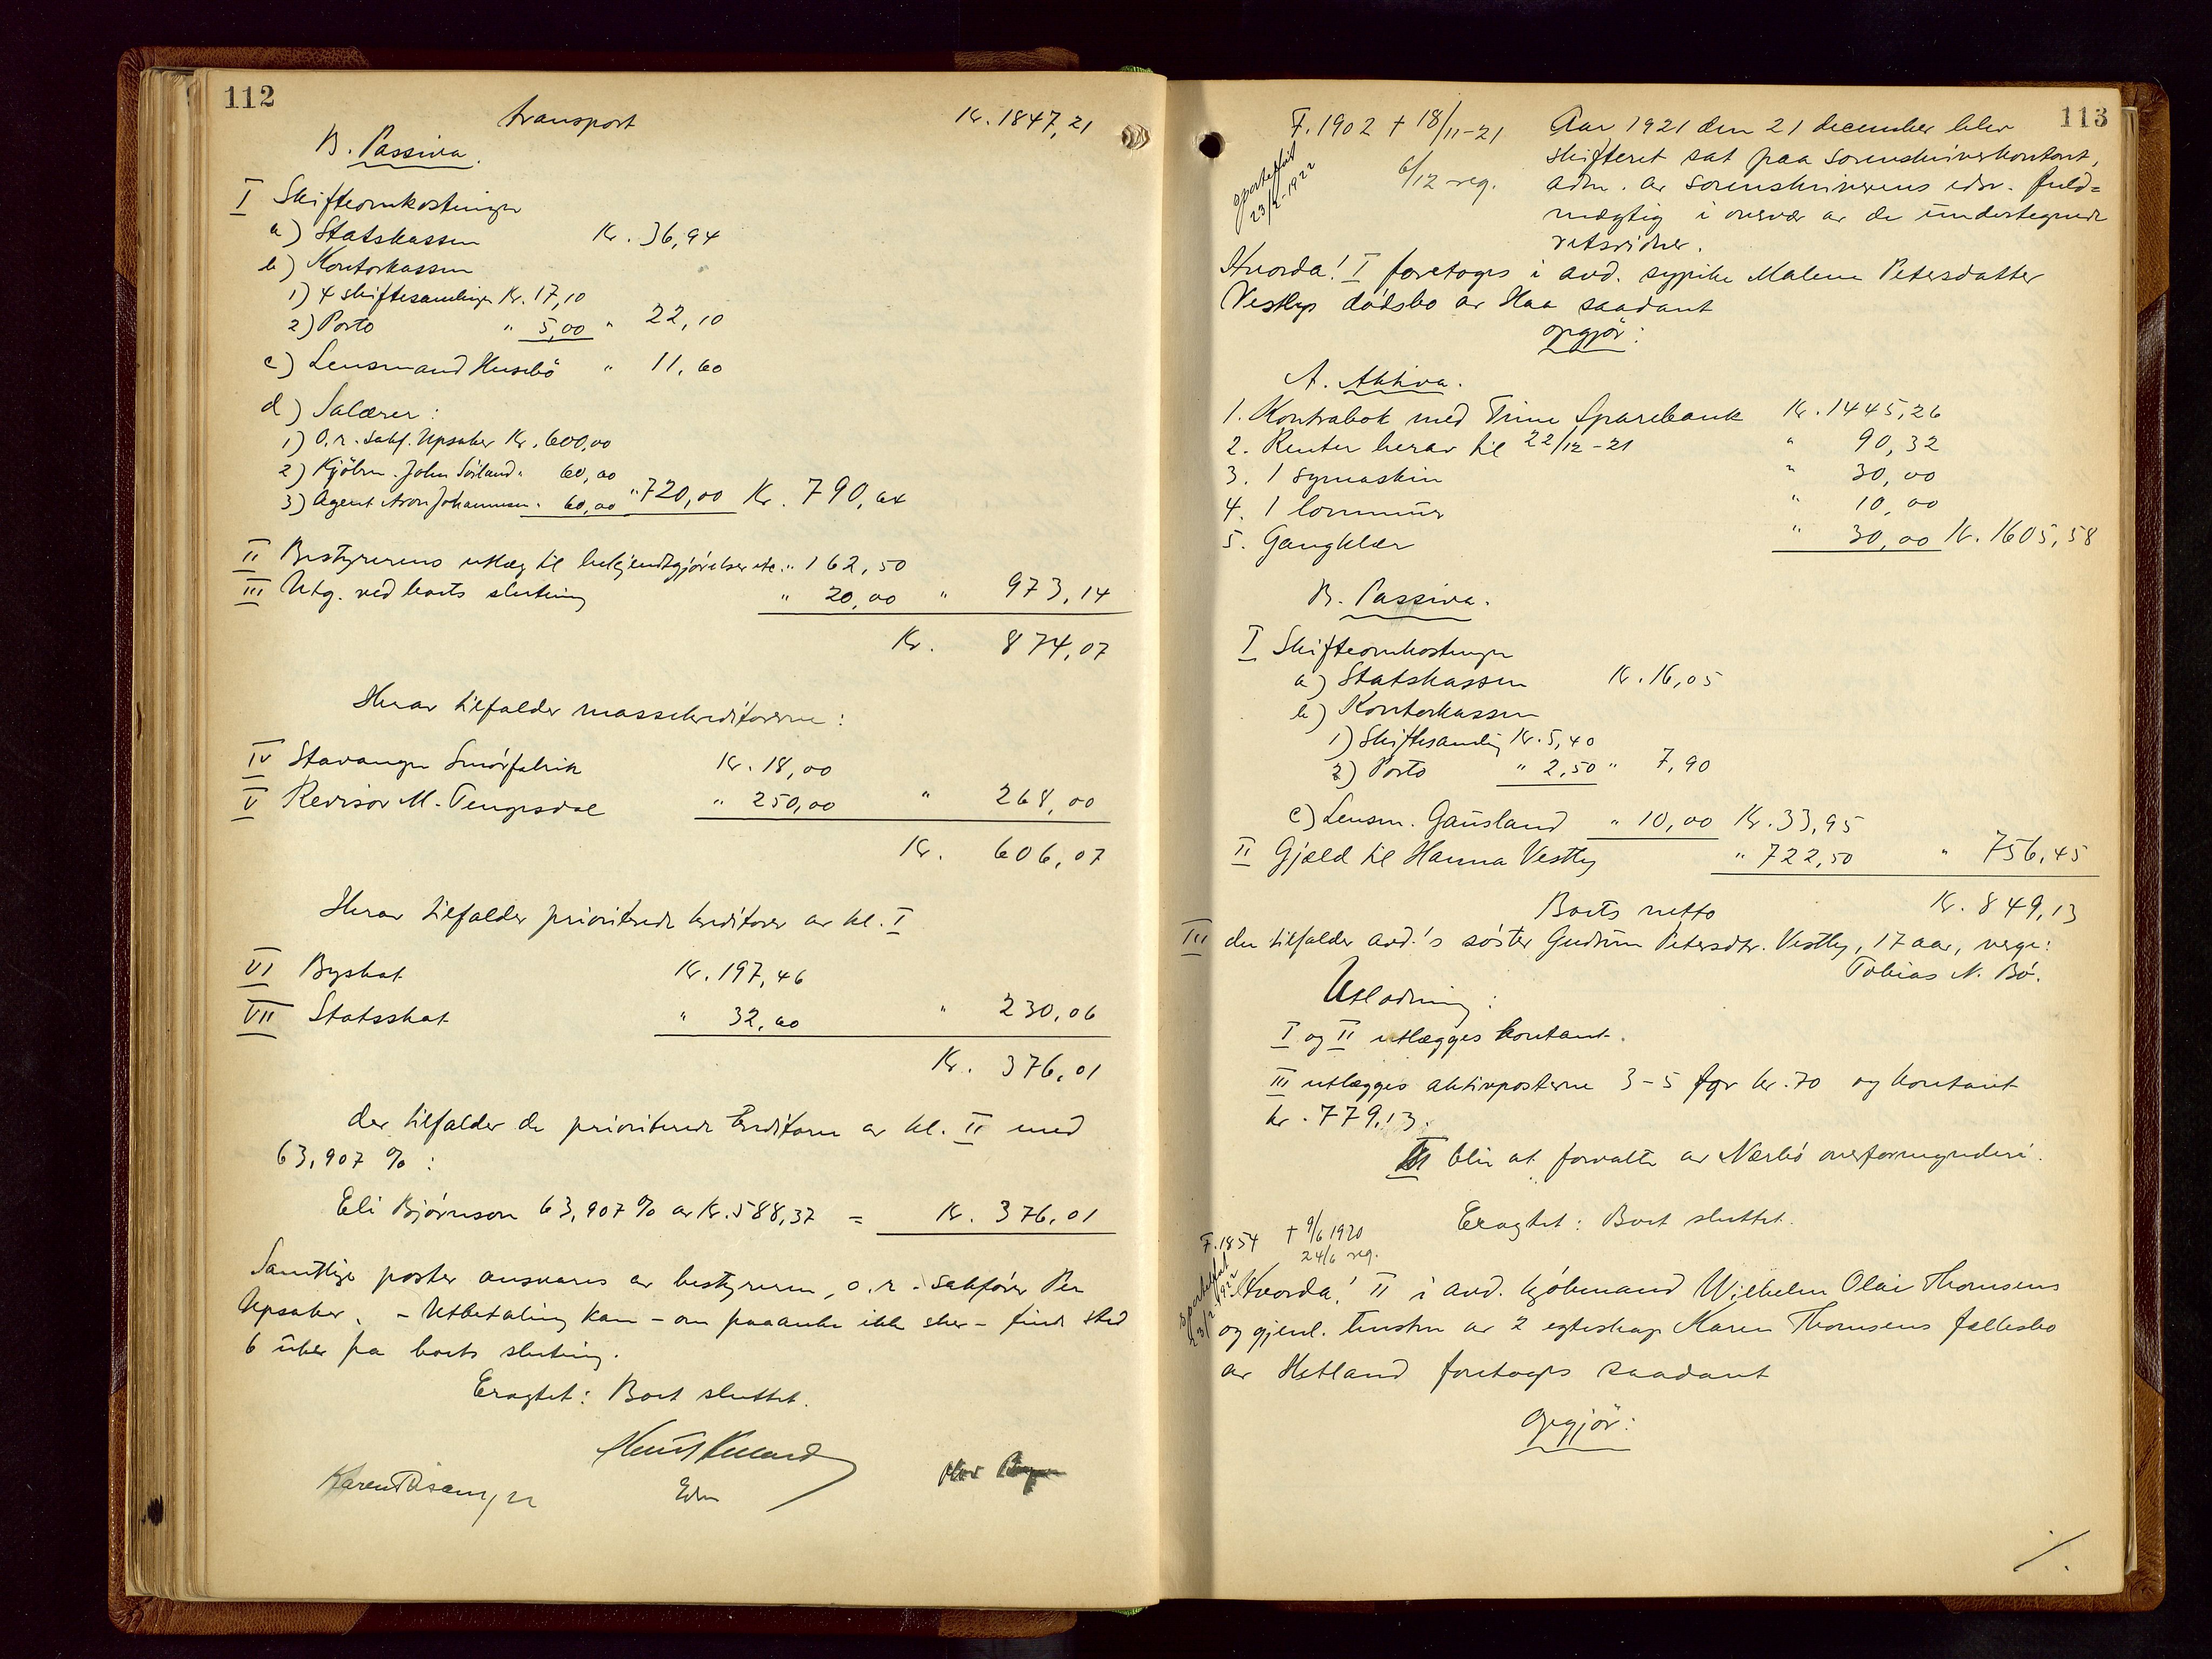 112
transport Kr. 1847,21
B. Passiva.
I Skifteomkostninger
a) Statskassen Kr. 36,94
b) Kontorkassen
1) 4 skiftesamlinger Kr. 17,10
2) Porto " 5,00 " 22,10
c) Lensmand Husebö " 11,60
d) Salærer:
1) O.r. sakf. Upsaker Kr. 600,00
2) Kjöbm. John Sörland " 60,00
3) Agent Aron Johannesen " 60,00 " 720,00 Kr. 790,64
II Bestyrerens utlæg til bekjendtgjörelser etc. " 162,50
III Utg. ved boets slutning " 20,00 " 973,14
Kr. 874,07
Herav tilfalder massekreditorerne:
IV Stavanger Smörfabrik Kr. 18,00
V Revisor M. Tengesdal " 250,00 " 268,00
Kr. 606,07
Herav tilfalder prioriterede kreditorer av kl. I
VI Byskat Kr. 197,46
VII Statsskat " 32,60 " 230,06
Kr. 376,01
der tilfalder de prioriterede kreditorer av kl. II med
63,907 % :
Eli Bjørnson 63,907 % av Kr. 588,37 = Kr. 376,01
Samtlige poster ansvares av bestyreren, o.r. sakförer Per
Upsaker. - Utbetaling kan - om paaanke ikke sker - finde sted
6 uker fra boets slutning.
Eragtet: Boet sluttet.
Edsv
113
F. 1902 † 18/11-21
6/12 reg.
sportelført
23/2-1922
Aar 1921 den 21 december blev
skifteret sat paa sorenskriverkontoret,
adm. av sorenskriverens edsv. fuld=
mægtig i overvær av de undertegnede
retsvidner.
Hvorda! I foretoges i avd. sypike Malene Petersdatter
Vestlys dödsbo av Haa saadant
opgjör:
A. Aktiva.
1. Kontrabok med Time Sparebank Kr. 1445,26
2. Renter herav til 22/12-21 " 90,32
3. 1 symaskin " 30,00
4. 1 lommeur " 10,00
5. Gangklær " 30,00 Kr. 1605,58
B. Passiva.
I Skifteomkostninger
a) Statskassen Kr. 16,05
b) Kontorkassen
1) Skiftesamling Kr. 5,40
2) Porto " 2,50 " 7,90
c) Lensm. Gausland " 10,00 Kr. 33,95
II Gjæld til Hanna Vestly " 722,50 " 756,45
Boets netto Kr. 849,13
III der tilfalder avd.'s söster Gudrun Petersdtr. Vestly, 17 aar, verge:
Tobias N. Bö.
Utlodning:
I og II utlægges kontant.
III utlægges aktivposterne 3-5 for kr. 70 og kontant
kr. 779,13.
III blir at forvalte av Nærbö overformynderi.
Eragtet: Boet sluttet.
F. 1854 † 9/6 1920
24/6 reg.
sportelført
23/2-1922
Hvorda! II i avd. kjöbmand Wilhelm Olai Thomsens
og gjenl. hustru av 2 egteskap Karen Thomsens fællesbo
av Hetland foretoges saadant
opgjör: